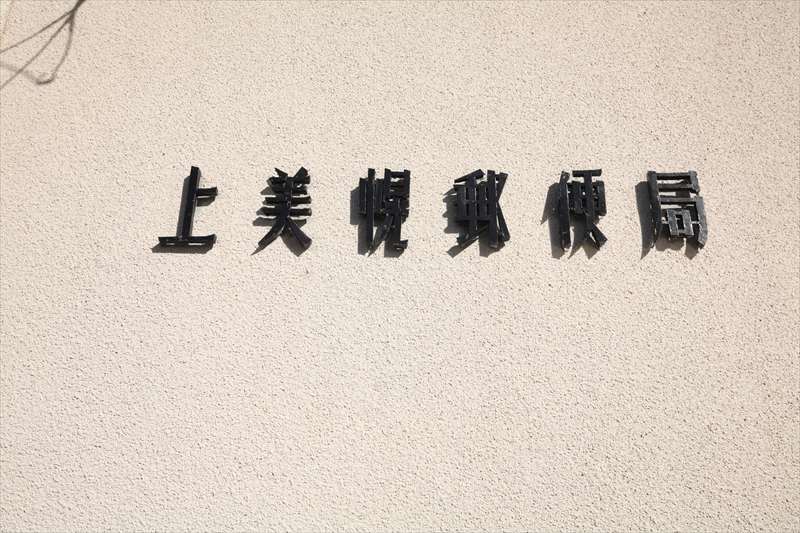 上美幌郵便局